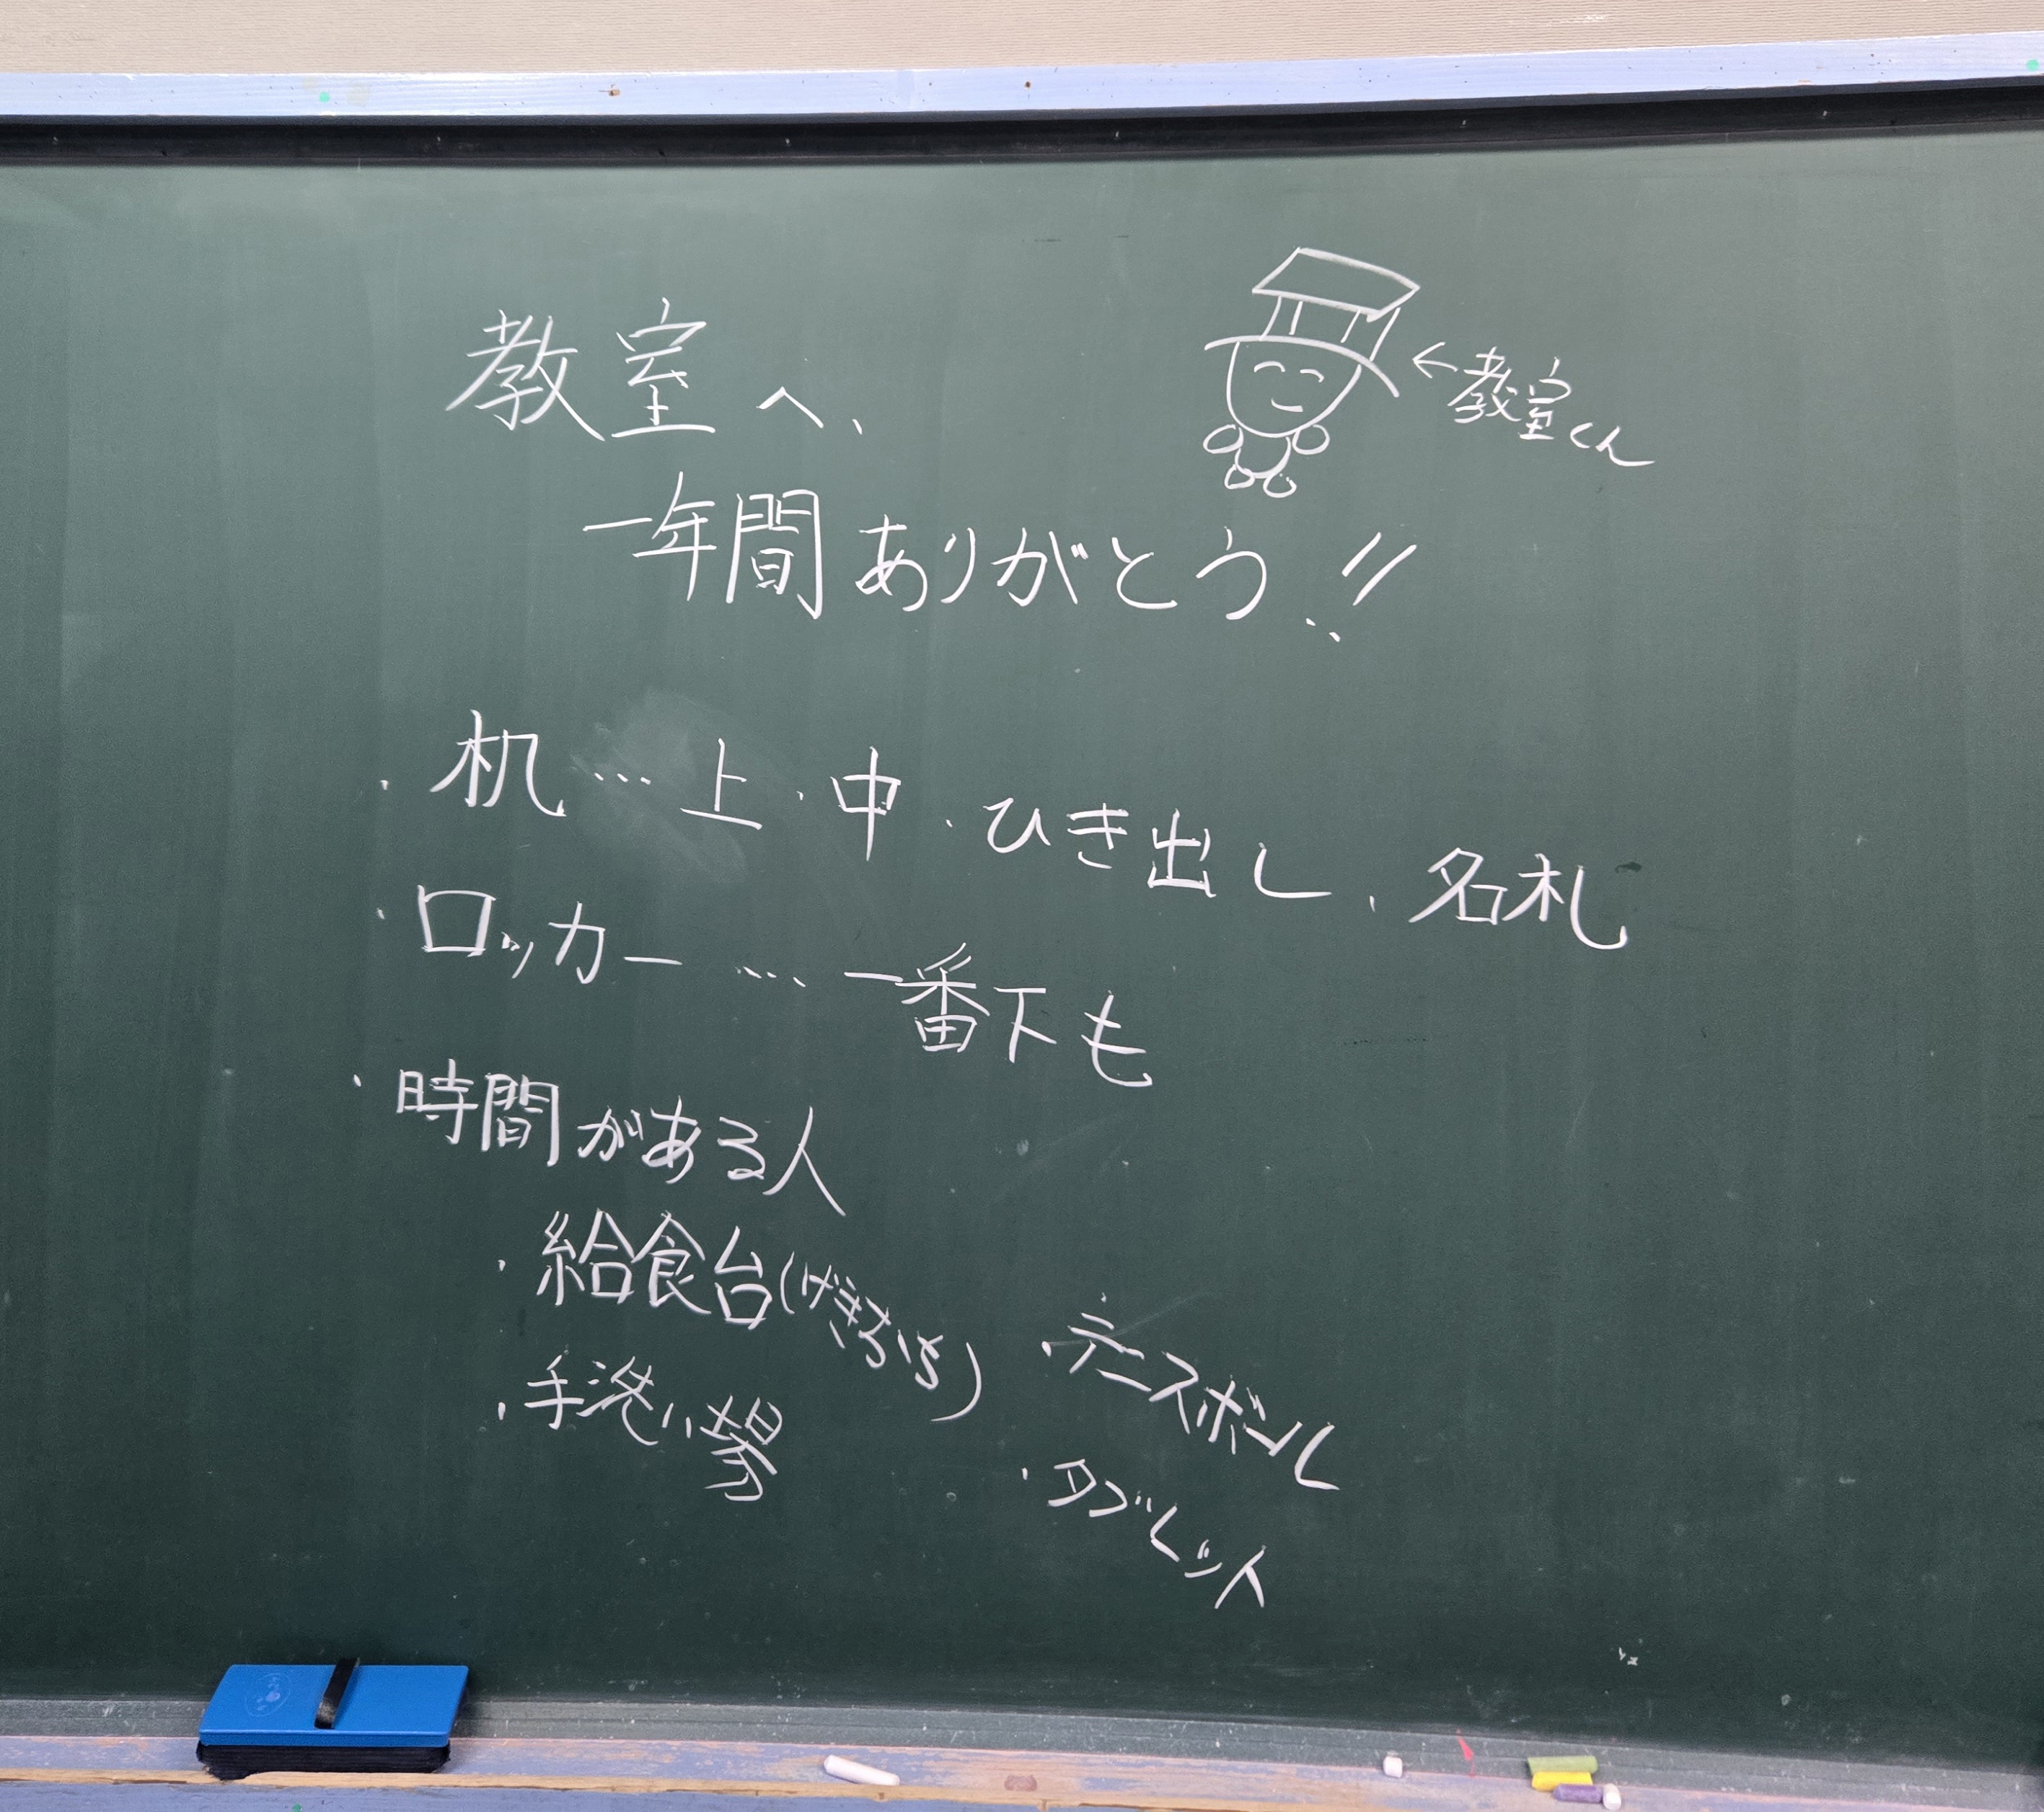 教室へ、
←教室くん
一年間ありがとう!!
・机…上・中・ひき出し、名札
・ロッカー…一番下も
・時間がある人
・給食台(げきおち)
・手洗い場
・テニスボール
・タブレット